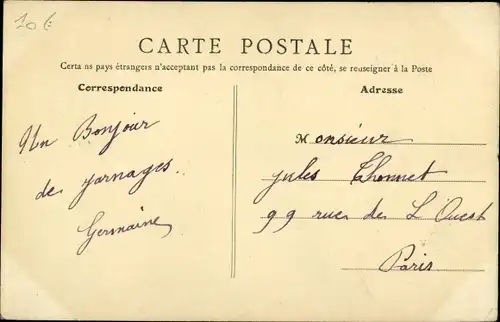 10 €
CARTE POSTALE
Certains pays étrangers n'acceptant pas la correspondance de ce côté, se renseigner à la Poste
Correspondance
Adresse
Un Bonjour
de Jarnages.
Germaine
Monsieur
Jules Thonnet
99 rue de L'Ouest
Paris